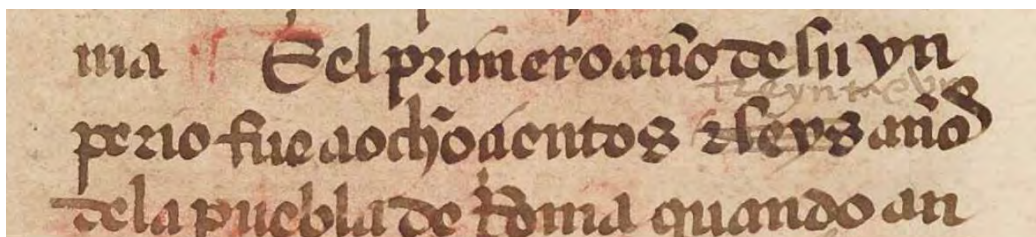 ma E el primero año de su yn
treynta e vn
perio fue a ochoçientos ⁊ seys años
de la puebla de Roma quando an